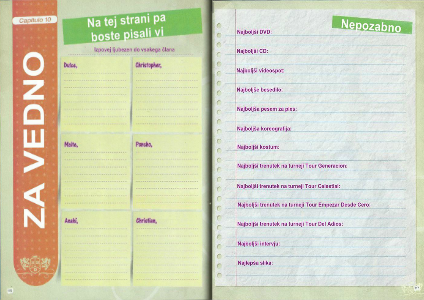 Capitulo 10
ZA VEDNO
Na tej strani pa
boste pisali vi
Izpovej ljubezen do vsakega člana
Dulce,
Christopher,
Maite,
Poncho,
Anahi,
Christian,
Nepozabno
Najboljši DVD:
Najboljši CD:
Najboljši videospot:
Najboljše besedilo:
Najboljša pesem za ples:
Najboljša koreografija:
Najboljši kostum:
Najboljši trenutek na turneji Tour Generacion:
Najboljši trenutek na turneji Tour Celestial:
Najboljši trenutek na turneji Tour Empezar Desde Cero:
Najboljši trenutek na turneji Tour Del Adios:
Najboljši intervju:
Najlepša slika: